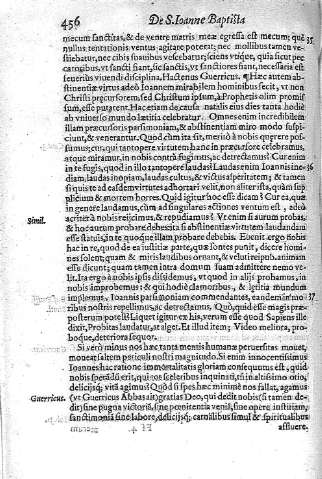 456 De S. Ioanne Baptista
mecum sanctitas, & de ventre matris meæ egressa est mecum; quē
nullus tentationis ventus agitare poterat; nec mollibus tamen ve-
stiebatur, nec cibis suauibus vescebatur; sciens vtique, quia sicut pec
catoribus, vt sancti fiant, sic sanctis, vt sanctiores fiant, necessaria est
seuerius viuendi disciplina. Hactenus Guerricus. ¶ Hæc autem ab-
stinentiæ virtus adeò Ioannem mirabilem hominibus fecit, vt non
Christi præcursorem, sed Christum ipsum, à Prophetis olim promis
sum, esse putarent. Hac etiam de causa natalis eius dies tanta hodiè
ab vniuerso mundo lætitia celebratur. Omnes enim incredibilem
illam præcursoris parsimoniam, & abstinentiam miro modo suspi-
ciunt, & venerantur. Quod cùm ita sit, meritò à nobis quærere pos-
sumus; cur, qui tantopere virtutem hanc in præcursore celebramus,
atque miramur, in nobis contrà fugimus, ac detrectamus? Cur enim
in te fugis, quod in illo tantopere laudas? Laudas enim Ioannis ine-
diam, laudas inopiam, laudas cultus, & victus asperitatem; & tamen
si quis te ad easdem virtutes adhortari velit, non aliter ista, quàm sup
plicium & mortem horres. Quid igitur hoc esse dicam? Cur ea, quæ
in genere laudamus, cùm ad singulares actiones ventum est, adeò
Simil. acriter à nobis reijcimus, & repudiamus? Vt enim si aurum probas,
& hoc aurum probare debes: ita si abstinentiæ virtutem laudandam
esse statuis, in te quoque illam probare debebis.
hac in te, quod de ea iustitiæ parte, quæ sontes punit, dicere homi-
nes solent; quam & miris laudibus ornant, & veluti reipub. animam
esse dicunt; quam tamen intra domum suam admittere nemo ve-
lit. Ita ergo à nobis ipsis dissidemus, vt quod in alijs probamus, in
nobis improbemus: & qui hodiè clamoribus, & lætitia mundum
implemus, Ioannis parsimoniam commendantes, eandem in mo- 37
ribus nostris repellimus, ac detrectamus. Quò, quid esse magis præ-
posterum potest? Liquet igitur ex his, verum esse quod Sapiens ille
dixit, Probitas laudatur, & alget. Et illud item; Video meliora, pro-
boque, deteriora sequor.
Si verò minus nos hæc tanta mentis humanæ peruersitas mouet,
moueat saltem periculi nostri magnitudo. Si enim innocentissimus
Ioannes hac ratione immortalitatis gloriam consequutus est, quid
nobis sperandū erit, qui tot sceleribus inquinati, in altissimo otio,
delicijsq; vitā agimus? Quòd si spes hæc minimè nos fallat, agamus
Guerricus. (vt Guerricus Abbas ait) gratias Deo, qui dedit nobis (si tamen de-
dit) sine pugna victoriā, sine pœnitentia veniā, sine opere iustitiam,
sanctimoniā sine labore, delicijsq; carnalibus simul & spiritualibus
Ff 4 affluere.